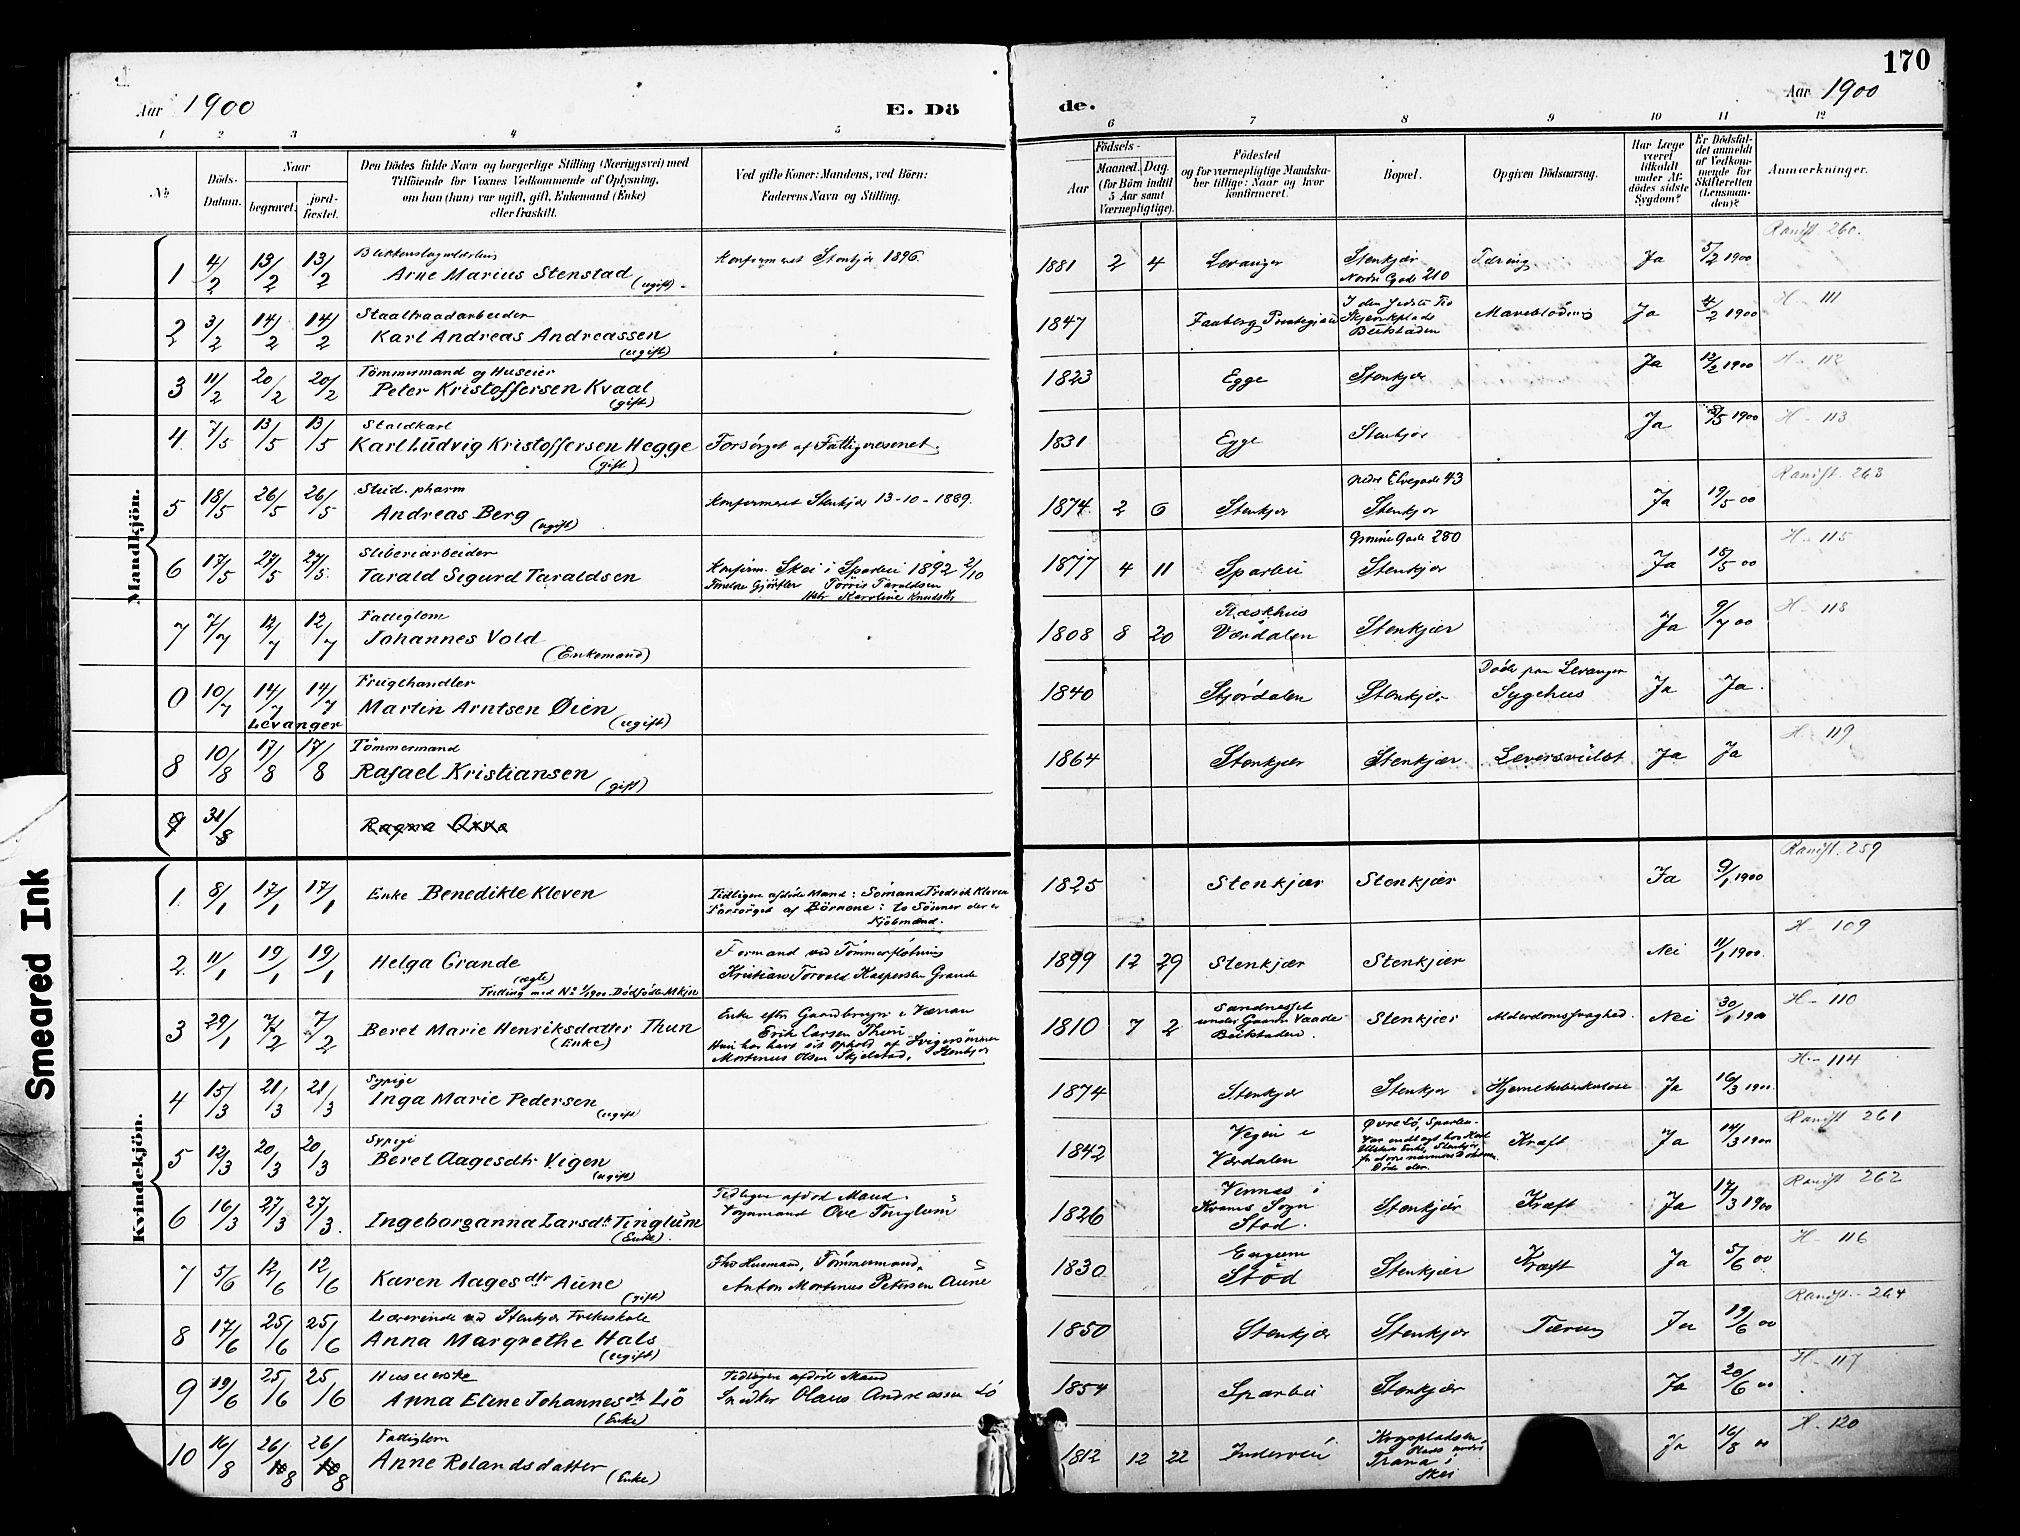 170
Aar 1900
E. Dö
de.
Aar 1900
1 2 3 4 5 6 7 8 9 10 11 12
No
Döds-Datum.
Naar
begravet.
jord-fæstet.
Den Dödes fulde Navn og borgerlige Stilling (Næringsvei) med
Tilföiende for Voxnes Vedkommende af Oplysning,
om han (hun) var ugift, gift, Enkemand (Enke)
eller fraskilt.
Ved gifte Koner: Mandens, ved Börn:
Faderens Navn og Stilling.
Födsels-
Aar
Maaned. Dag.
(for Börn indtil
5 Aar samt
Værnepligtige).
Födested
og for værnepligtige Mandska-
ber tillige: Naar og hvor
konfirmeret.
Bopæl.
Opgiven Dödsaarsag.
Har Læge
været
tilkaldt
under Af-
dödes sidste
Sygdom?
Er Dödsfal-
det anmeldt
af Vedkom-
mende for
Skifteretten
(Lensman-
den)?
Anmærkninger.
Mandkjön.
1 4/2 13/2 13/2 Arne Marius Stenstad (ugift) Konfirmeret Stenkjær 1896. 1881 2 4 Levanger Stenkjær Nordre Gade 210 Tæring Ja 5/2 1900 Ranift 260.
2 3/2 14/2 14/2 Staaltraadarbeider
Karl Andreas Andreassen (ugift) 1847 Faaberg Præstegjæld Beitstaden Maveblödning Ja 4/2 1900 H - 111
3 11/2 20/2 20/2 Tömmermand og Huseier
Peter Kristoffersen Kvaal (gift) 1823 Egge Stenkjær Ja 12/2 1900 H - 112
4 7/5 13/5 13/5 Staldkarl
Karl Ludvig Kristoffersen Hegge (gift) Forsörget af Fattigvæsenet. 1831 Egge Stenkjær Ja 1900 H - 113
5 18/5 26/5 26/5 Stud. pharm
Andreas Berg (ugift) Konfirmeret Stenkjær 13-10-1889. 1874 2 6 Stenkjær nedre Elvegade 43 Stenkjær Ja 19/5 00 Ranift. 263
6 17/5 27/5 27/5 Sliberiarbeider
Tarald Sigurd Taraldsen Konfirm. Skei i Sparbu 1892 2/10
Törris Taraldsen
Karoline Knudsdtr 1877 4 11 Sparbu Gade 280 Stenkjær Ja 18/5 00 H - 115
7 7/7 12/7 12/7 Fattiglem
Johannes Vold (Enkemand) 1808 8 20 Værdalen Stenkjær Ja 9/7 00 H - 118
0 10/7 14/7 14/7 Levanger Frugthandler
Martin Arntsen Øien (ugift) 1840 Stjördalen Stenkjær Döde paa Levanger Sygehus Ja Ja.
8 10/8 17/8 17/8 Tömmermand
Rafael Kristiansen (gift) 1864 Stenkjær Stenkjær Leversvulst Ja Ja H - 119
9 31/8 Ragna
Kvindekjön.
1 8/1 17/1 17/1 Enke Benedikte Kleven Tidligere afdöde Mand: Sömand Fredrik Kleven
Forsörget af Börnene: to Sönner der er
Kjöbmænd. 1825 Stenkjær Stenkjær Ja 9/1 1900 Ranift. 259
2 11/1 19/1 19/1 Helga Grande (ægte)
Tvilling med No 1/1900. Dödfödte Mkjn Formand ved Tömmerflötning
Kristian Torvald Kaspersen Grande 1899 12 29 Stenkjær Stenkjær Nei 11/1 1900. H - 109
3 29/1 7/2 7/2 Beret Marie Henriksdatter Thun (Enke) Enke efter Gaardbruger iVærran
Erik Larsen Thun
Hun har havt sit Ophold af Svigersönnen
Mortinus Olsen Skjelstad, Stenkjær 1810 7 2 Sandnesset
under Gaarden Vaade
Beitstaden. Stenkjær Alderdomssvaghed. Nei 30/1 1900 H - 110
4 15/3 21/3 21/3 Sypige
Inga Marie Pedersen (ugift) 1874 Stenkjær Stenkjær Hjernetuberkulose Ja 16/3 1900 H - 114
5 12/3 20/3 20/3 Sypige
Beret Aagesdtr Vigen (ugift) 1842 Værdalen Øvre Lö, Sparbu. Döde der. Kræft Ja 14/3 1900 Ranift 261
6 16/3 27/3 27/3. Ingeborganna Larsdtr Tinglum (Enke). Tidligere afdöd Mand.
Vognmand Ove Tinglum 1826 Kvams Sogn
Stod. Stenkjær Kræft Ja 17/3 1900 Ranift 262
7 5/6 12/6 12/6 Karen Aagesdtr Aune (gift) Tömmermand,
Anton Mortinus Petersen Aune 1830 Stöd Stenkjær Kræft Ja 5/6 00 H - 116
8 17/6 25/6 25/6 Lærerinde ved Stenkjær Folkeskole
Anna Margrethe Hals (ugift) 1850 Stenkjær Stenkjær Tæring Ja 19/6 00 Ranift. - 264
9 19/6 25/6 25/6 Huseierske
Anna Eline Johannesdtr Lö (Enke) Tidligere afdöd Mand
Snedker Olaus Andreassen Lö 1854 Sparbu Stenkjær Ja 20/6 00 H - 117
10 16/8 26/8 26/8 Fattiglem
Anne Rolandsdatter (Enke) 1812 12 22 Inderöen Ja 16/8 00 H - 120
Smeared Ink